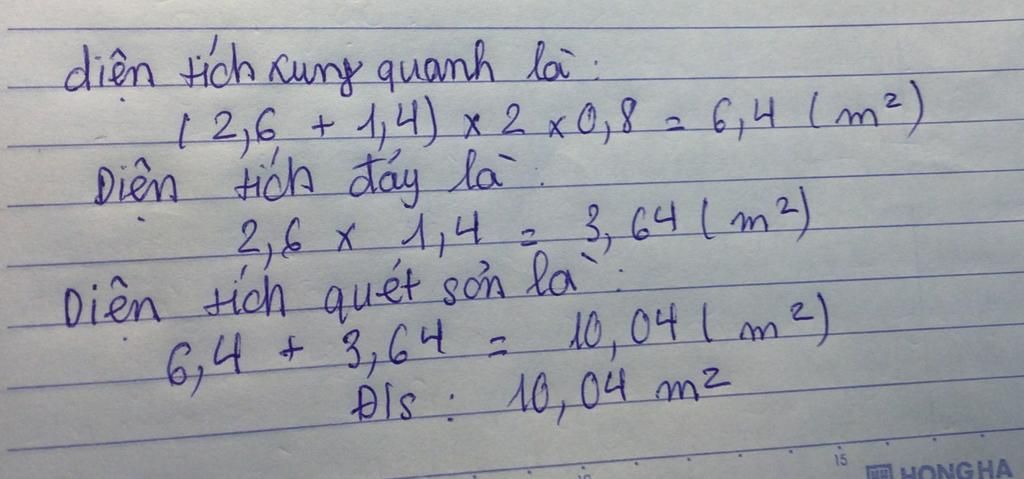 diện tích xung quanh là:
(2,6 + 1,4) x 2 x 0,8 = 6,4 (m²)
Diện tích đáy là:
2,6 x 1,4 = 3,64 (m²)
Diện tích quét sơn là:
6,4 + 3,64 = 10,04 (m²)
Đ/s: 10,04 m²
15
HONG HA